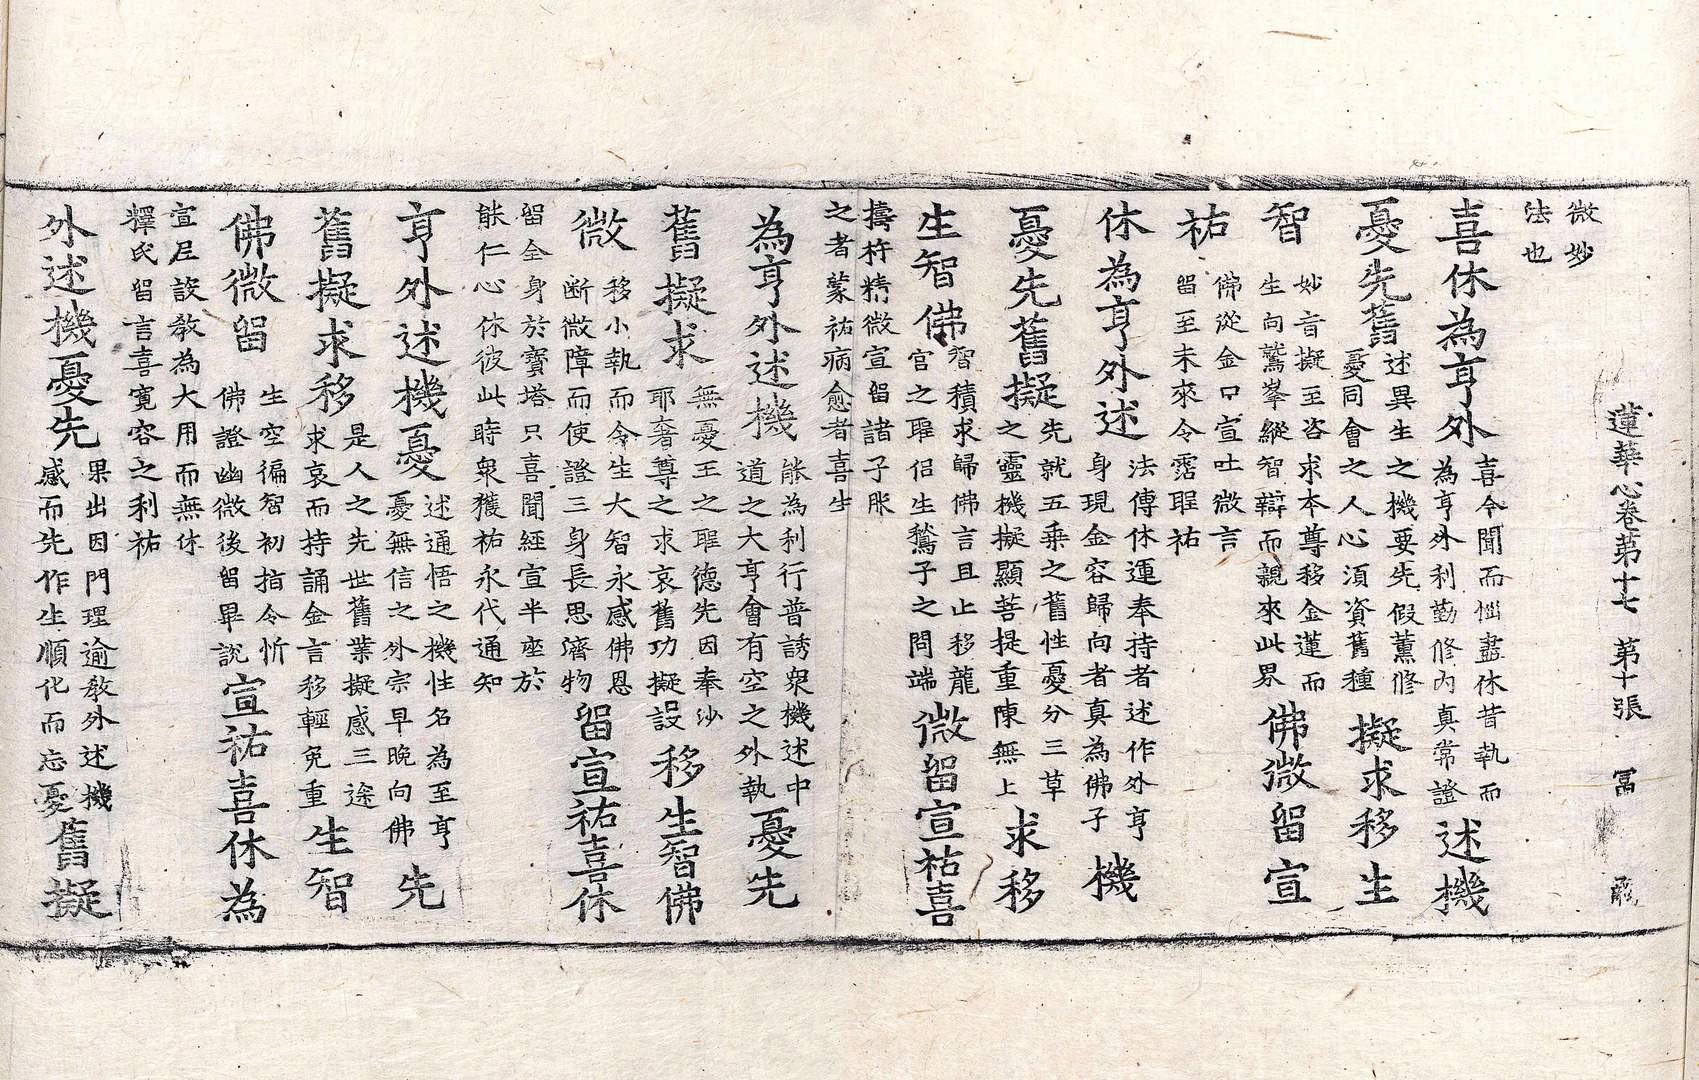 蓮華心卷第十七　第十張　冨
微妙
法也
喜休為亨外
喜令聞而惱盡休昔執而
為亨外利勤修内真常證
述機
憂先舊
述異生之機要先假薰修
憂同會之人心湏資舊種
擬求移生
智
妙旨擬至咨求本尊移金蓮而
生向鷲峯縱智辯而親來此界
佛微留宣
祐
佛從金口宣吐微言
留至未來令霑聖祐
休為亨外述
法傳休運奉持者述作外亨
身現金容歸向者真為佛子
機
憂先舊擬
先就五乘之舊性憂分三草
之靈機擬顯菩提重陳無上
求移
生智佛
智積求歸佛言且止移龍
宮之聖侣生鶖子之問端
微留宣祐喜
擣杵精微宣留諸子服
之者蒙祐病愈者喜生
為亨外述機
能為利行普誘衆機述中
道之大亨會有空之外執
憂先
舊擬求
無憂王之聖德先因奉沙
耶奢尊之求哀舊功擬設
移生智佛
微
移小執而令生大智永感佛恩
断微障而使證三身長思濟物
留宣祐喜休
留全身於寳塔只喜聞經宣半座於
能仁心休彼此時衆獲祐永代通知
亨外述機憂
述通悟之機性名為至亨
憂無信之外宗早晚向佛
先
舊擬求移
是人之先世舊業擬感三途
求哀而持誦金言移輕免重
生智
佛微留
生空徧智初指令忻
佛證幽微後留畢説
宣祐喜休為
宣尼設教為大用而無休
釋氏留言喜寛容之利祐
外述機憂先
果出因門理逾教外述機
感而先作生順化而忘憂
舊擬